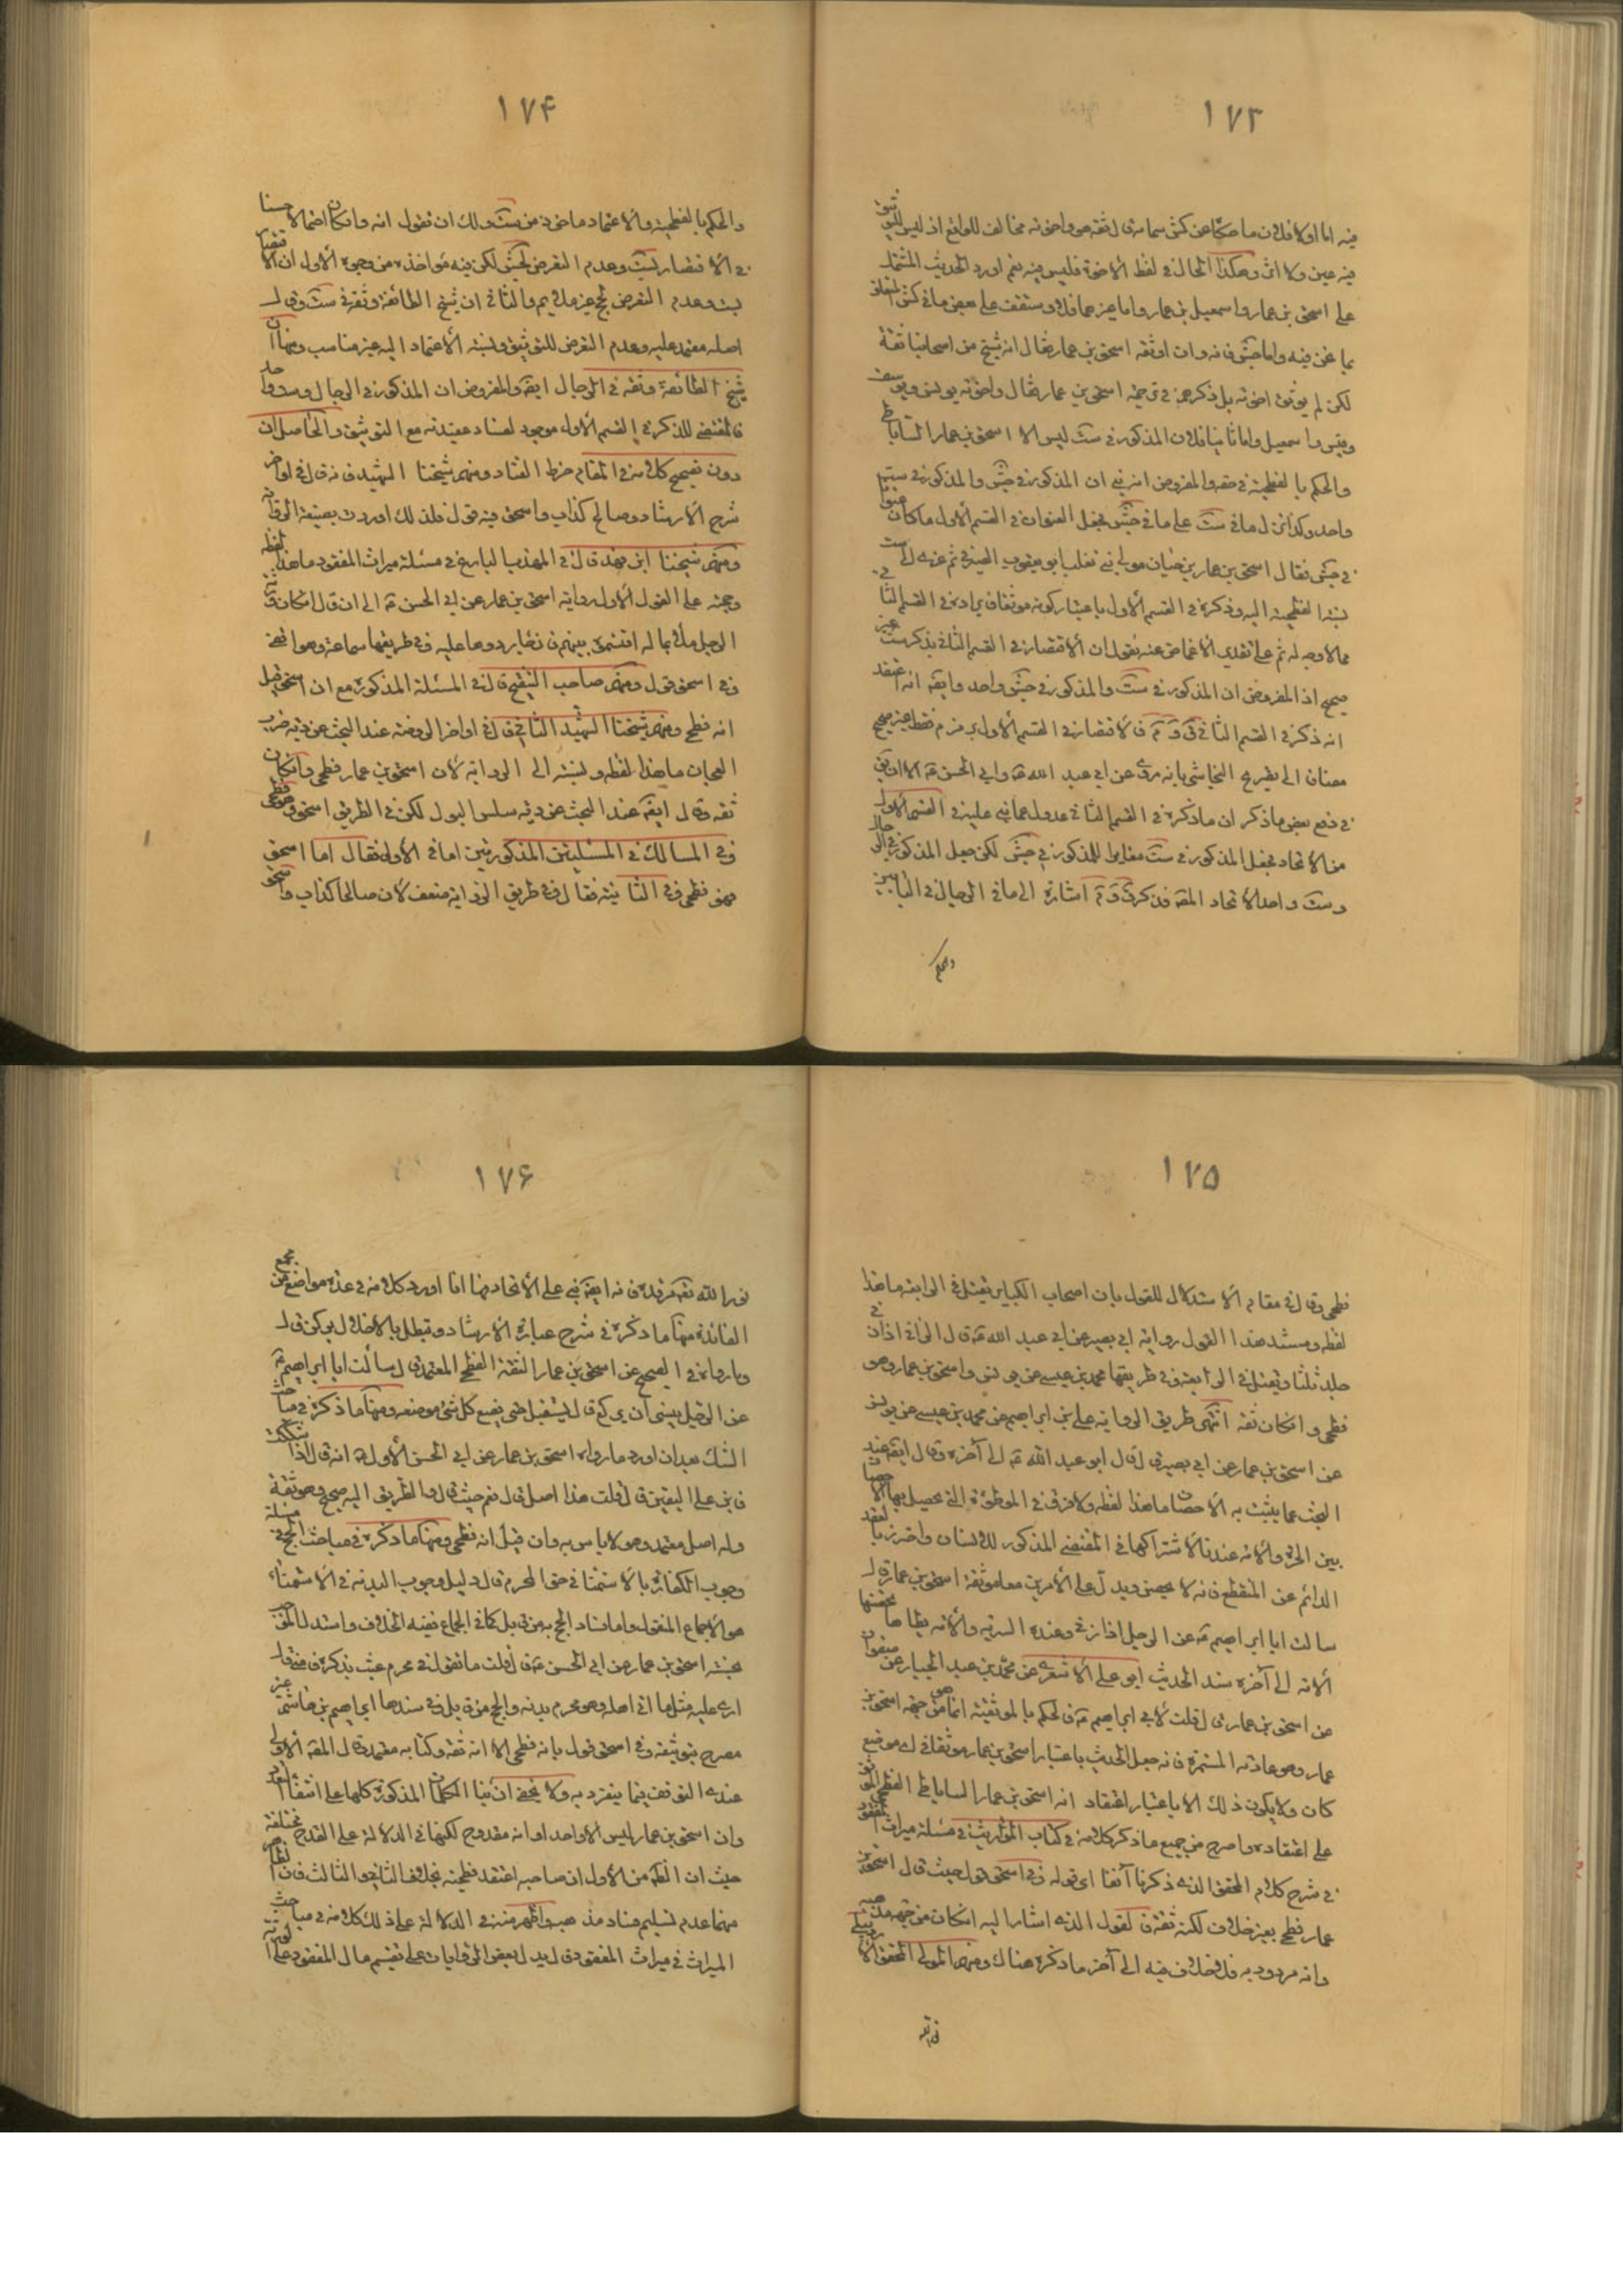 ١٧٣
فيه اما اولا فلان ما حكاه عن كش سماعه قال ثقة هو واخوته مخالف للواقع اذ ليس للتوثيق
فيه عين ولا اثر وهكذا الحال في لفظ الاخوة فليس فيه نعم اورد الحديث المشتمل
على اسحق بن عمار واسمعيل بن عمار واما غيرهما فلا وستقف على بعض ما في كش المتعلق
بما نحن فيه واما جش فانه وان اوثقه اسحق بن عمار فقال انه شيخ من اصحابنا ثقة
لكن لم يوثق اخوته بل ذكرهم في ترجمة اسحق بن عمار فقال واخوته يونس ويوسف
وقيس واسمعيل واما ثانيا فلان المذكور في ست ليس الا اسحق بن عمار الساباطي
والحكم بالفطحية في حقه والمفروض انه نبه ان المذكور في جش والمذكور في ست
واحد وكذا نزل ما في ست على ما في جش فجعل العنوان في القسم الاول ما كان عنوانا
في جش فقال اسحق بن عمار بن حيان مولى بني تغلب ابو يعقوب الصيرفي ثم عزى الى ست
نسبة الفطحية اليه وذكره في القسم الاول باعتبار كونه موثقا فايراده في القسم الثاني
مما لا وجه له ثم على تقدير الاغماض عنه نقول ان الاقتصار في القسم الثاني بذكر ست غير
صحيح اذ المفروض ان المذكور في ست والمذكور في جش واحد وايضا انه اعتقد
انه ذكر في القسم الثاني ق و م فالاقتصار في القسم الاول برمز م فقط غير صحيح
مضافا الى تصريح النجاشي بانه روى عن ابي عبد الله ع وابي الحسن ع الا ان يق
في دفع بعض ما ذكر ان ما ذكره في القسم الثاني عدول عما نبه عليه في القسم الاول
من الاتحاد فجعل المذكور في ست مغايرا للمذكور في جش لكن جعل المذكور في الرجال
وست واحدا لاتحاد اللقب فذكر ق و م اشارة الى ما في الرجال في البابين
والحكم
١٧۴
والحكم بالفطحية والاعتماد ماخوذ من ست ولك ان تقول انه وان كان احتمالا حسنا
في الاقتصار بست وعدم التعرض لجش لكن فيه مؤاخذة من وجوه الاول ان الاقتصار
بست وعدم التعرض لجخ غير ملايم والثاني ان شيخ الطائفة وثقه في ست وقال
اصله معتمد عليه وعدم التعرض للتوثيق ونسبة الاعتماد اليه غير مناسب ومنها ان
شيخ الطائفة وثقه في الرجال ايضا والمفروض ان المذكور في الرجال وست واحد
فالمقتضى للذكر في القسم الاول موجود لفساد عقيدته مع التوثيق والحاصل ان
دون تصحيح كلامه في المقام خرط القتاد ومنهم شيخنا الشهيد فانه قال في اواخر
شرح الارشاد وصالح كذاب واسحق فيه قول فلذلك اوردت بصيغة الرواية
ومنهم شيخنا ابن فهد قال في المهذب البارع في مسئلة ميراث المفقود ما هذا لفظه
وحجته على القول الاول رواية اسحق بن عمار عن ابي الحسن ع الى ان قال ان كان ورثة
الرجل ملاء بماله اقتسموه بينهم فان جاء ردوها عليه وفي طريقها سماعة وهو واقفي
وفي اسحق قول ومنهم صاحب التنقيح قال في المسئلة المذكورة مع ان اسحق قيل
انه فطحي ومنهم شيخنا الشهيد الثاني قال في اواخر الروضة عند البحث عن دية ضرب
العجان ما هذا لفظه ونسبته الى الرواية لان اسحق بن عمار فطحي وان كان
ثقة وقال ايضا عند البحث عن دية سلس البول لكن في الطريق اسحق وهو فطحي
وفي المسالك في المسئلتين المذكورتين اما في الاولى فقال اما اسحق
فهو فطحي وفي الثانية فقال وفي طريق الرواية ضعف لان صالحا كذاب واسحق
١٧۵
فطحي وقال في مقام الاستدلال للقول بان اصحاب الكباير يقتل في الرابعة ما هذا
لفظه ومستند هذا القول رواية ابي بصير عن ابي عبد الله ع قال الزاني اذا زنى
جلد ثلثا ويقتل في الرابعة وفي طريقها محمد بن عيسى عن يونس واسحق بن عمار وهو
فطحي وان كان ثقة انتهى طريق الرواية علي بن ابراهيم عن محمد بن عيسى عن يونس
عن اسحق بن عمار عن ابي بصير قال قال ابو عبد الله ع الى آخره وقال ايضا عند
البحث عما يثبت به الاحصان ما هذا لفظه ولا فرق في الموطوئة التي يحصل بها الاحصان
بين الحرة والامة عندنا لاشتراكهما في المقتضى المذكور للاحصان واحترز بالعقد
الدائم عن المنقطع فانه لا يحصن ويدل على الامرين معا موثقة اسحق بن عمار قال
سالت ابا ابراهيم ع عن الرجل اذا زنى وعنده السرية والامة يطاها تحصنها
الامة الى آخره سند الحديث ابو علي الاشعري عن محمد بن عبد الجبار عن صفوان
عن اسحق بن عمار قال قلت لابي ابراهيم ع فالحكم بالموثقية انما هو من جهة اسحق بن
عمار وهو عادته المستمرة فانه جعل الحديث باعتبار اسحق بن عمار موثقا في اي موضع
كان ولا يكون ذلك الا باعتبار اعتقاد انه اسحق بن عمار الساباطي الفطحي الموثق
على اعتقاده واصرح من جميع ما ذكر كلامه في كتاب المواريث في مسئلة ميراث المفقود
في شرح كلام المحقق الذي ذكرنا آنفا اي قوله وفي اسحق قول حيث قال اسحق بن
عمار فطحي بغير خلاف لكنه ثقة فالقول الذي اشار اليه ان كان من جهة مذهبه
وانه مردود به فلا خلاف فيه الى آخر ما ذكره هناك ومنهم المولى المحقق الاردبيلي
نور الله
١٧۶
نور الله تعالى مرقده فانه ايضا نبه على الاتحاد فيما افاد اورد كلامه في عدة مواضع من مجمع
الفائدة منها ما ذكره في شرح عبارة الارشاد وتبطل بالاخلال بركن قال
وما رواه في الصحيح عن اسحق بن عمار الثقة الفطحي المعتمد قال سالت ابا ابراهيم ع
عن الرجل ينسى ان يركع قال يستقبل حتى يضع كل شيء موضعه ومنها ما ذكره في مباحث
الشك بعد ان اورد ما رواه اسحق بن عمار عن ابي الحسن الاول ع انه قال اذا شككت
فابن على اليقين قال قلت هذا اصل قال نعم حيث قال والطريق اليه صحيح وهو ثقة
وله اصل معتمد وهو لا باس به وان قيل انه فطحي ومنها ما ذكره في مباحث الحج في مسئلة
وجوب الكفارة بالاستمناء في حق المحرم قال دليل وجوب البدنة في الاستمناء
هو الاجماع المنقول واما فساد الحج به من قابل كما في الجماع ففيه الخلاف واستدل الموجب
بحسنة اسحق بن عمار عن ابي الحسن ع قال قلت ما تقول في محرم عبث بذكره فامنى قال
ارى عليه مثل ما على من اتى اهله وهو محرم بدنة والحج من قابل وفي سندها ابراهيم بن هاشم غير
مصرح بتوثيقه وفي اسحق قول بانه فطحي الا انه ثقة وكتابه معتمد وقال العلامة الاولى
عندي التوقف فيما ينفرد به ولا يخفى ان بناء الكلمات المذكورة كلها على اتفاق
وان اسحق بن عمار ليس الا واحد او انه مقدوح لكنها في الدلالة على القدح مختلفة
حيث ان الظاهر من الاول ان صاحبه اعتقد فطحيته بخلاف الثاني والثالث فان الظاهر
منهما عدم تسليم فساد مذهبه واظهر منه في الدلالة على ذلك كلامه في مباحث
الميراث في ميراث المفقود قال ويدل بعض الروايات على تقسيم مال المفقود على